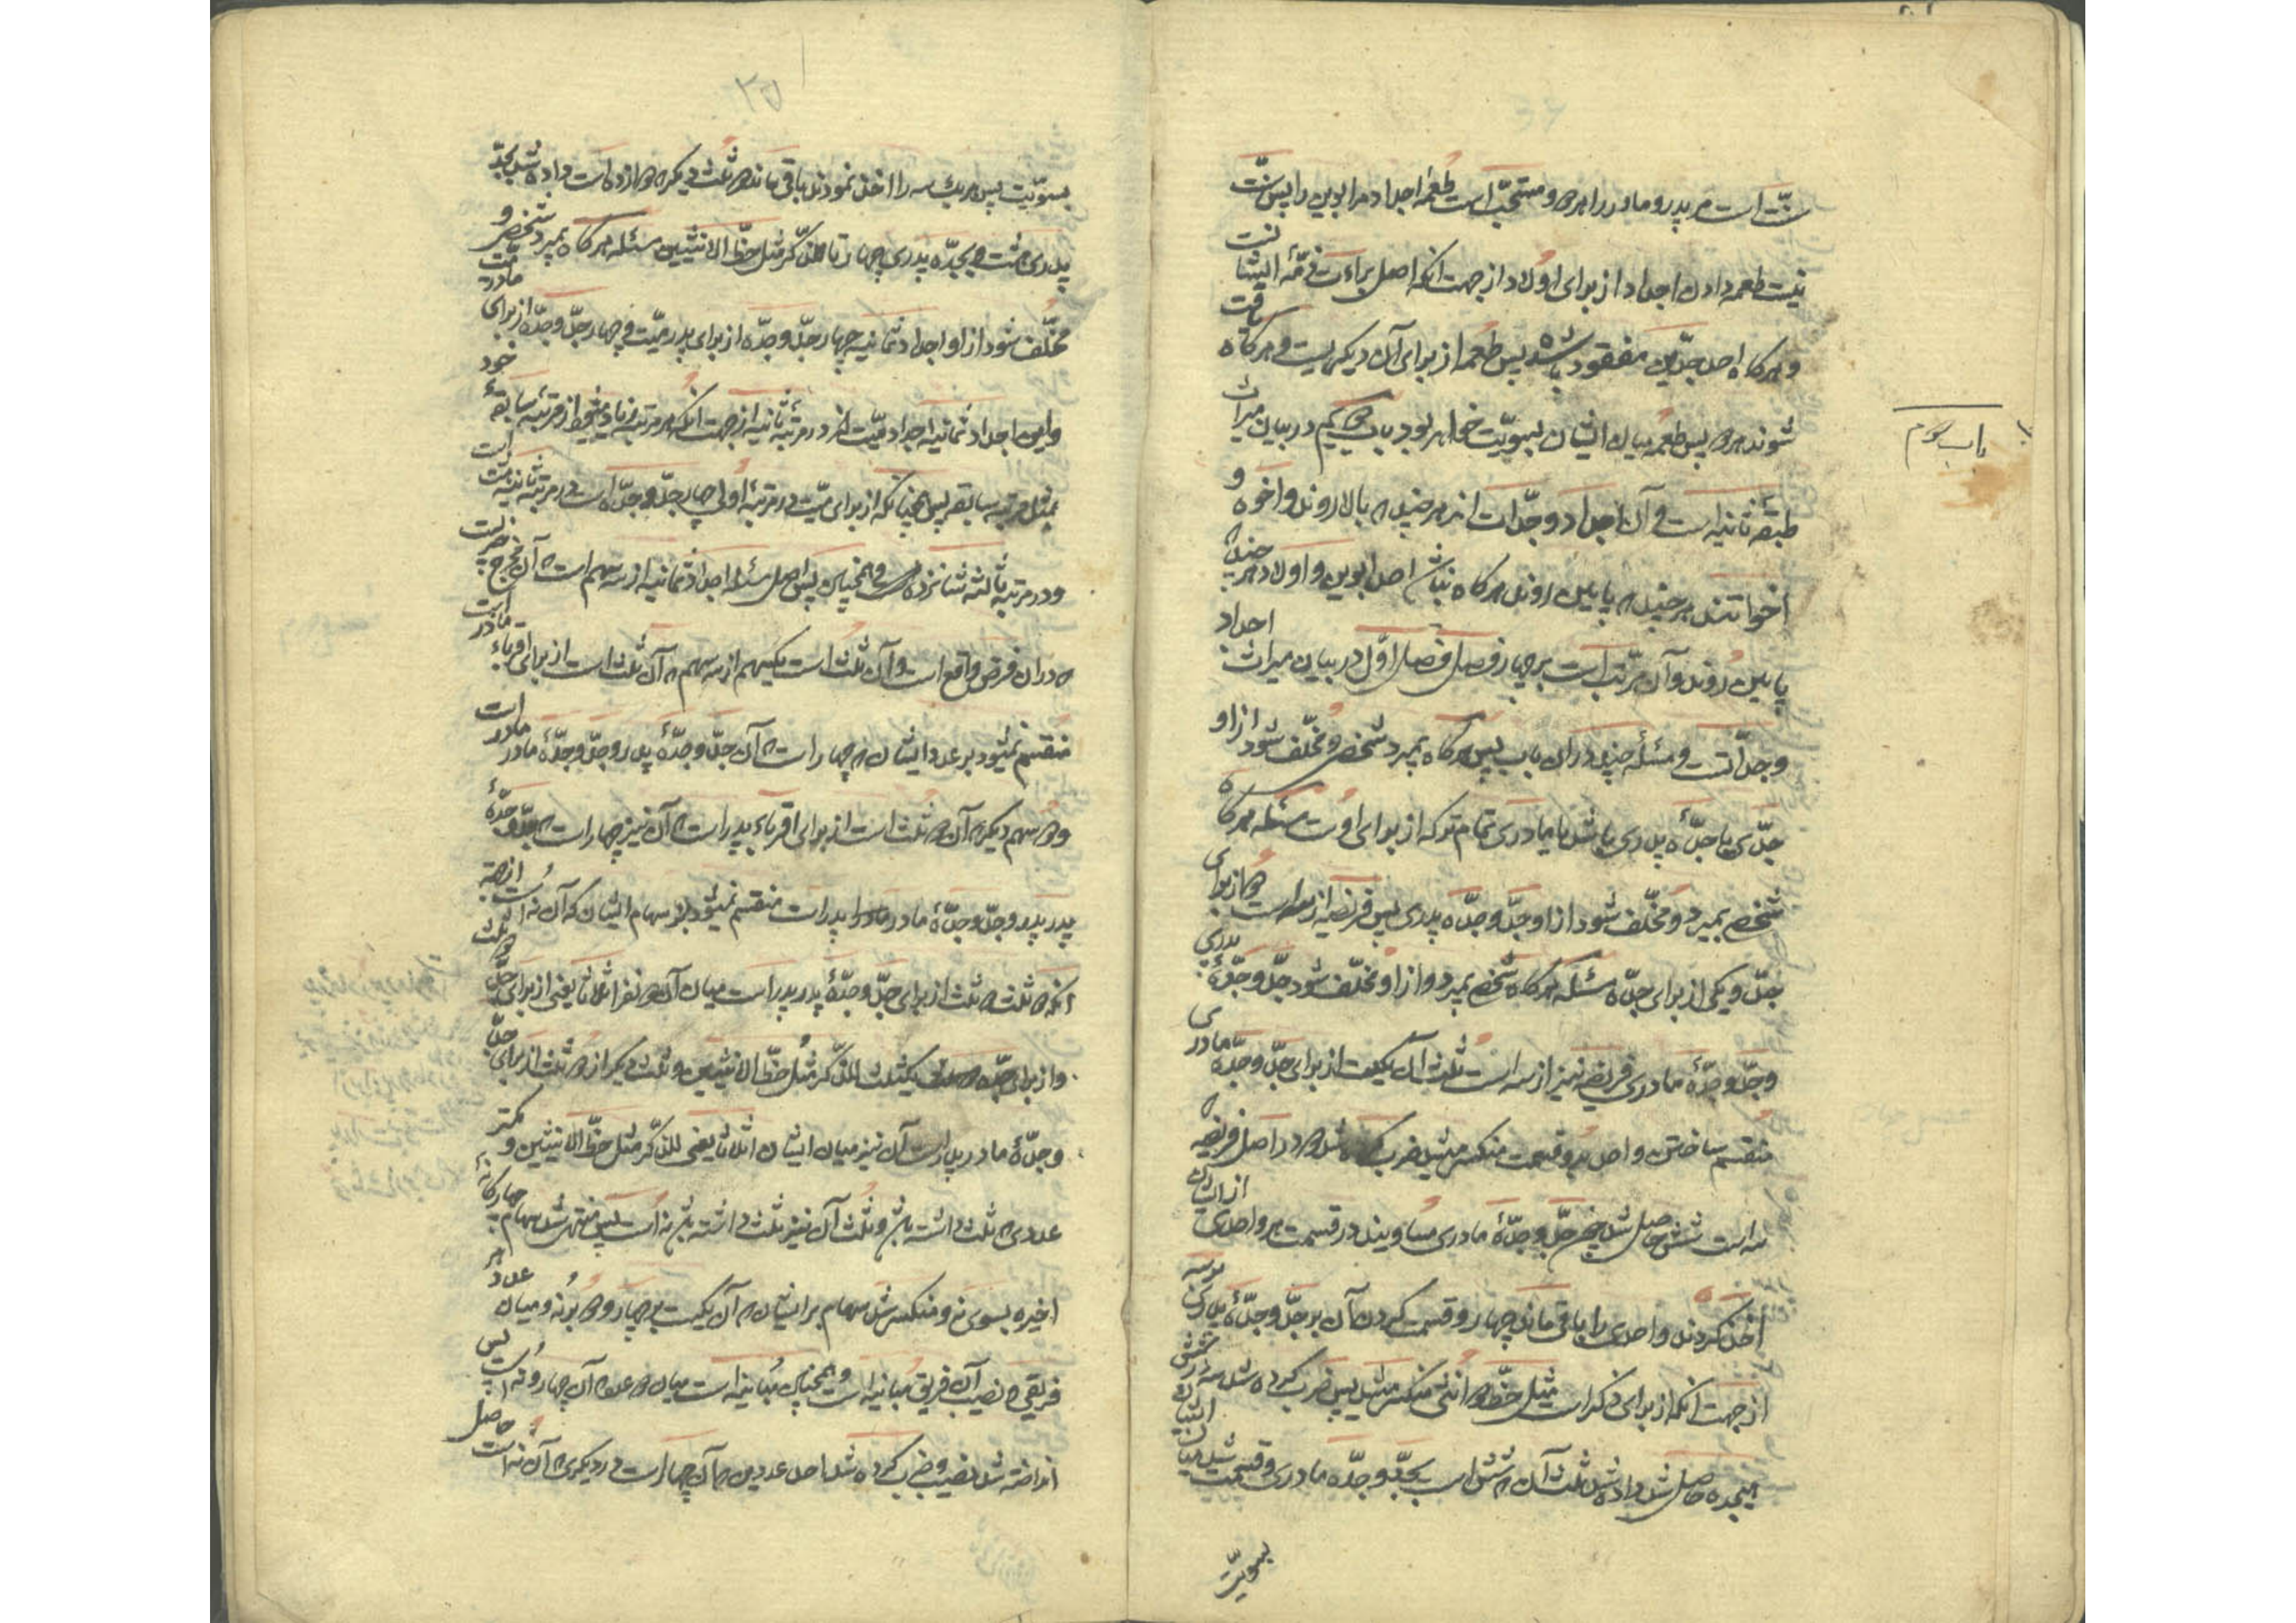 سنّت است مر پدر و مادر را هر دو مستحبّ است طعمه اجداد مر ابوین را پس سنّت
نیست طعمه دادن اجداد از برای اولاد از جهت آنکه اصل براءت ذمّه ایشان است
و هرگاه احد جدّین مفقود باشد پس طعمه از برای آن دیگریست و هرگاه یافت
شوند هر دو پس طعمه میان ایشان بسویّت خواهد بود باب سیم در بیان میراث
طبقه ثانیه است و آن اجداد و جدّات اند هر چند که بالا روند و اخوه و
اخواتند هر چند که پایین روند هرگاه نباشد احد ابوین و اولاد هر چند که
پایین روند و آن مرتّب است بر چهار فصل فصل اوّل در بیان میراث اجداد
و جدّاتست و مسئله چند در آن باب پس هرگاه بمیرد شخصی و مخلّف شود از او
جدّی یا جدّه پدری باشد یا مادری تمام ترکه از برای اوست مسئله هرگاه
شخصی بمیرد و مخلّف شود از او جدّ و جدّه پدری پس فریضه از سه است دو از برای
جدّ و یکی از برای جدّه مسئله هرگاه شخصی بمیرد و از او مخلّف شود جدّ و جدّهٔ پدری
و جدّ و جدّهٔ مادری فریضه نیز از سه است ثلث آن یکیست از برای جدّ و جدّه مادری
منقسم ساختن واحد بدو قسمت منکسر میشد ضرب کرده شد دو در اصل فریضه که
سه است شش حاصل شد جدّ و جدّهٔ مادری مساویند در قسمت هر واحدی از ایشان
اخذ کردند واحدی را باقی ماند چهار و قسمت کردن آن بر جدّ و جدّهٔ پدری بر سه
از جهت آنکه از برای ذکر است مثل حظّ دو انثی منکسر میشد پس ضرب کرده شد سه در شش
هیجده حاصل شد داده شد ثلث آن که شش است بجدّ و جدّه مادری و قسمت شد میان ایشان
بسویّت
باب سوم
۲۵
بسویّت پس هر یک سه را اخذ نمودند باقی ماند دو ثلث دیگر که دوازده است داده شد بجدّ
پدری هشت و بجدّه پدری چهار تا للذّکر مثل حظّ الانثیین مسئله هرگاه بمیرد شخصی و
مخلّف شود از او اجداد ثمانیه چهار جدّ و جدّه از برای پدر میّت و چهار جدّ و جدّه از برای مادر میّت
و این اجداد ثمانیه اجداد میّت اند در مرتبهٔ ثانیه از جهت آنکه هر مرتبه زیاد میشود از مرتبه سابقهٔ خود
بمثل مرتبه سابقه پس چنانکه از برای میّت در مرتبهٔ اولی چهار جدّ و جدّه است در مرتبه ثانیه هشت است
و در مرتبه ثالثه شانزده است و همچنین پس اصل مسئله اجداد ثمانیه از سه سهم است که آن مخرج
که در آن فرض واقع است و آن ثلث است یکسهم از سه سهم که آن ثلث است از برای اقرباء مادر است
منقسم نمیشود بر عدد ایشان که چهار است که آن جدّ و جدّهٔ پدر و جدّ و جدّهٔ مادر مادر است
و دو سهم دیگر که آن دو ثلث است از برای اقرباء پدر است که آن نیز چهار است که جدّ و جدّهٔ
پدر پدر و جدّ و جدّهٔ مادر پدر است منقسم نمیشود بر سهام ایشان که آن نه است از جهة
آنکه دو ثلث دو ثلث از برای جدّ و جدّهٔ پدر پدر است میان آن دو نفر اثلاثا یعنی از برای جدّ دو ثلث
و از برای جدّه یکثلث للذّکر مثل حظّ الانثیین و ثلث دیگر از دو ثلث از برای جدّ
و جدّهٔ مادر پدر است آن نیز میان ایشان اثلاثا یعنی للذّکر مثل حظّ الانثیین و کمتر
عددی که ثلث داشته باشد و ثلث آن نیز ثلث داشته باشد نه است پس منتهی شد سهام چهارگانهٔ
اخیره بسوی نه و منکسر شد سهام بر ایشان که آن یکیست بر چهار و دو بر نه و میان عدد هر
فریقی و نصیب آن فریق مباینه است و همچنین مباینه است میان دو عدد که آن چهار و نه است پس
انداخته شد نصیب و ضرب کرده شد احد عددین که آن چهار است در دیگری که آن نه است حاصل